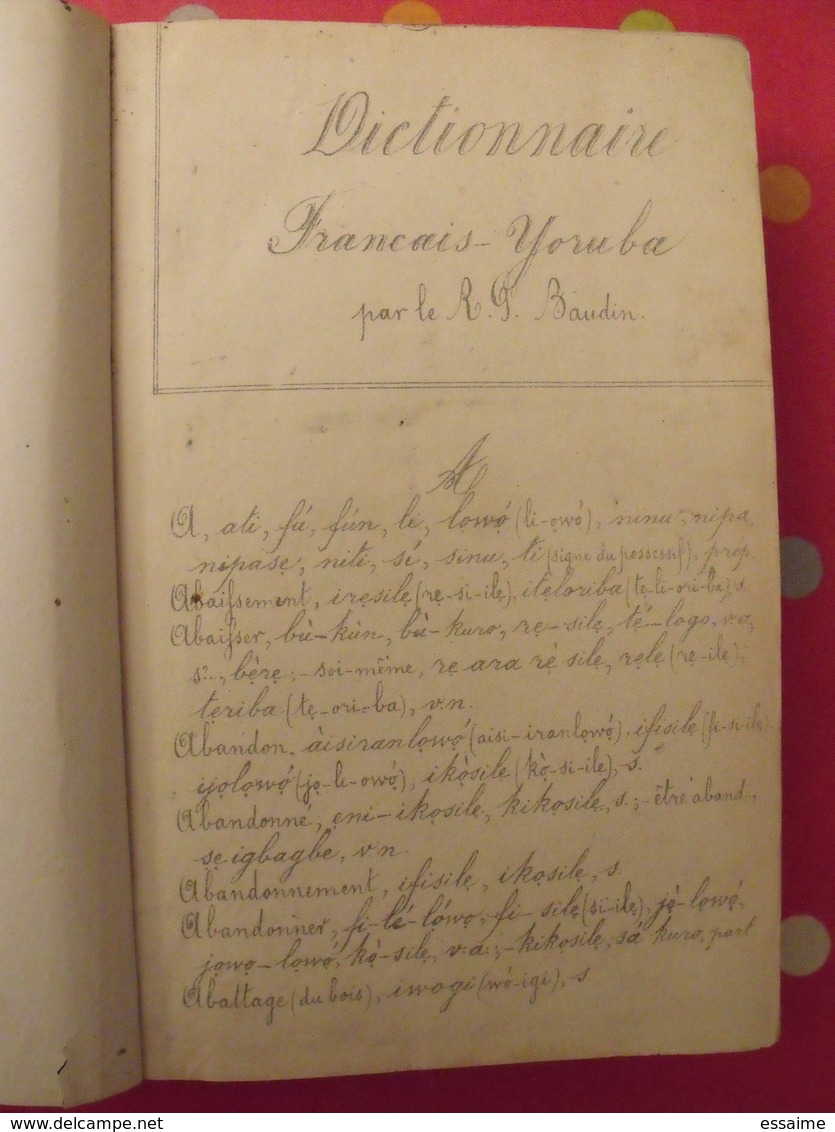 Dictionnaire
Francais - Yoruba
par le R. P. Baudin.
A
A, ati, fú, fún, li, lọwọ́ (li-ọwọ́), ninu, nipa,
nipasẹ, nitè, sí, sinu, ti (signe du possessif), prép.
Abaissement, irẹsilẹ (rẹ-si-ilẹ), itẹloriba (tẹ-li-ori-ba), s.
Abaisser, bù-kùn, bù-kuro, rẹ-silẹ, tẹ́-logo, v.a,
bẹ̀rẹ; - soi-même, rẹ ara rẹ̀ silẹ, rẹlẹ (rẹ-ilẹ),
tẹriba (tẹ-ori-ba), v.n.
Abandon, àisiranlọwọ́ (aisi-iranlọwọ́), ifisilẹ (fi-si-ilẹ),
ijọlọwọ́ (jọ-li-ọwọ́), ikọ̀silẹ (kọ̀-si-ilẹ), s.
Abandonné, ẹni-ikọsilẹ, kikọsilẹ, s.; - être aband.,
sẹ igbagbe, v.n.
Abandonnement, ifisilẹ, ikọsilẹ, s.
Abandonner, fi-lé-lówọ, fi-silẹ (si-ilẹ), jọ̀-lọwọ́,
jọwọ-lọwọ́, kọ̀-silẹ, v.a.; - kikọsilẹ, sá kuro, part.
Abattage (du bois), iwogi (wó-igi), s.
delcampe.net
essaime